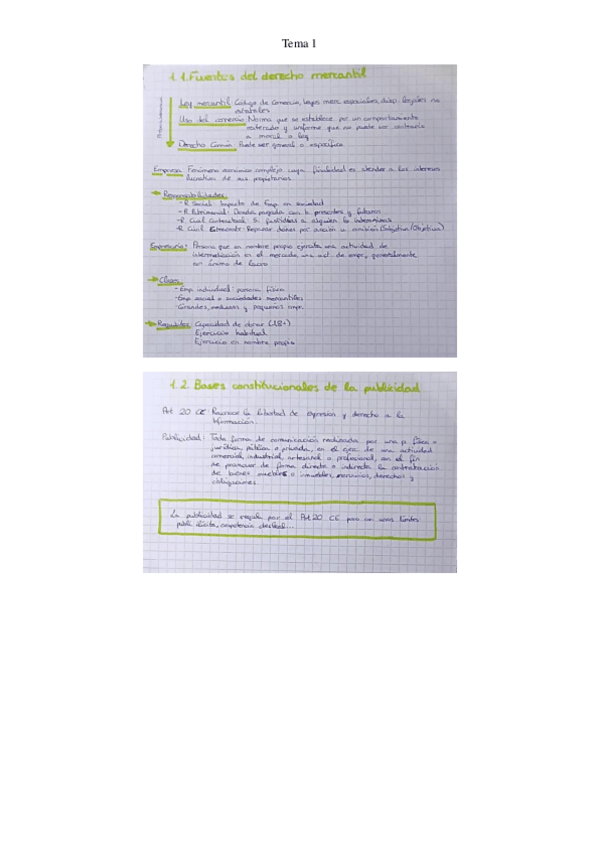 Tema 1
1.1. Fuentes del derecho mercantil
Ley mercantil: Código de Comercio, leyes merc. especiales, disp. legales no
estatales
Uso del comercio: Norma que se establece por un comportamiento
reiterado y uniforme que no puede ser contrario
a moral o ley
Derecho Común: Puede ser general o específica
Empresa: Fenómeno económico complejo cuya finalidad es atender a los intereses
lucrativos de sus propietarios.
→ Responsabilidades
-R. Social: Impacto de Emp. en sociedad
-R. Patrimonial: Deudas pagadas con b. presentes y futuros
-R. Civil Contractual: Si perjudicas a alguien lo indemnizas
-R. Civil Extracont: Reparar daños por acción u omisión (Subjetiva/Objetiva)
Empresario: Persona que en nombre propio ejercita una actividad de
intermediación en el mercado, una act. de empr., generalmente
con ánimo de lucro
→ Clases
-Emp. individual: persona física
-Emp. social o sociedades mercantiles
-Grandes, medianas y pequeñas empr.
→ Requisitos: Capacidad de obrar (18+)
Ejercicio habitual
Ejercicio en nombre propio
1.2. Bases constitucionales de la publicidad
Art. 20 CE: Reconoce la libertad de expresión y derecho a la
información.
Publicidad: Toda forma de comunicación realizada por una p. física o
jurídica, pública o privada, en el ejerc. de una actividad
comercial, industrial, artesanal o profesional, con el fin
de promover de forma directa o indirecta la contratación
de bienes muebles o inmuebles, servicios, derechos y
obligaciones
La publicidad se regula por el Art 20 CE pero con unos límites
publi ilícita, competencia desleal...